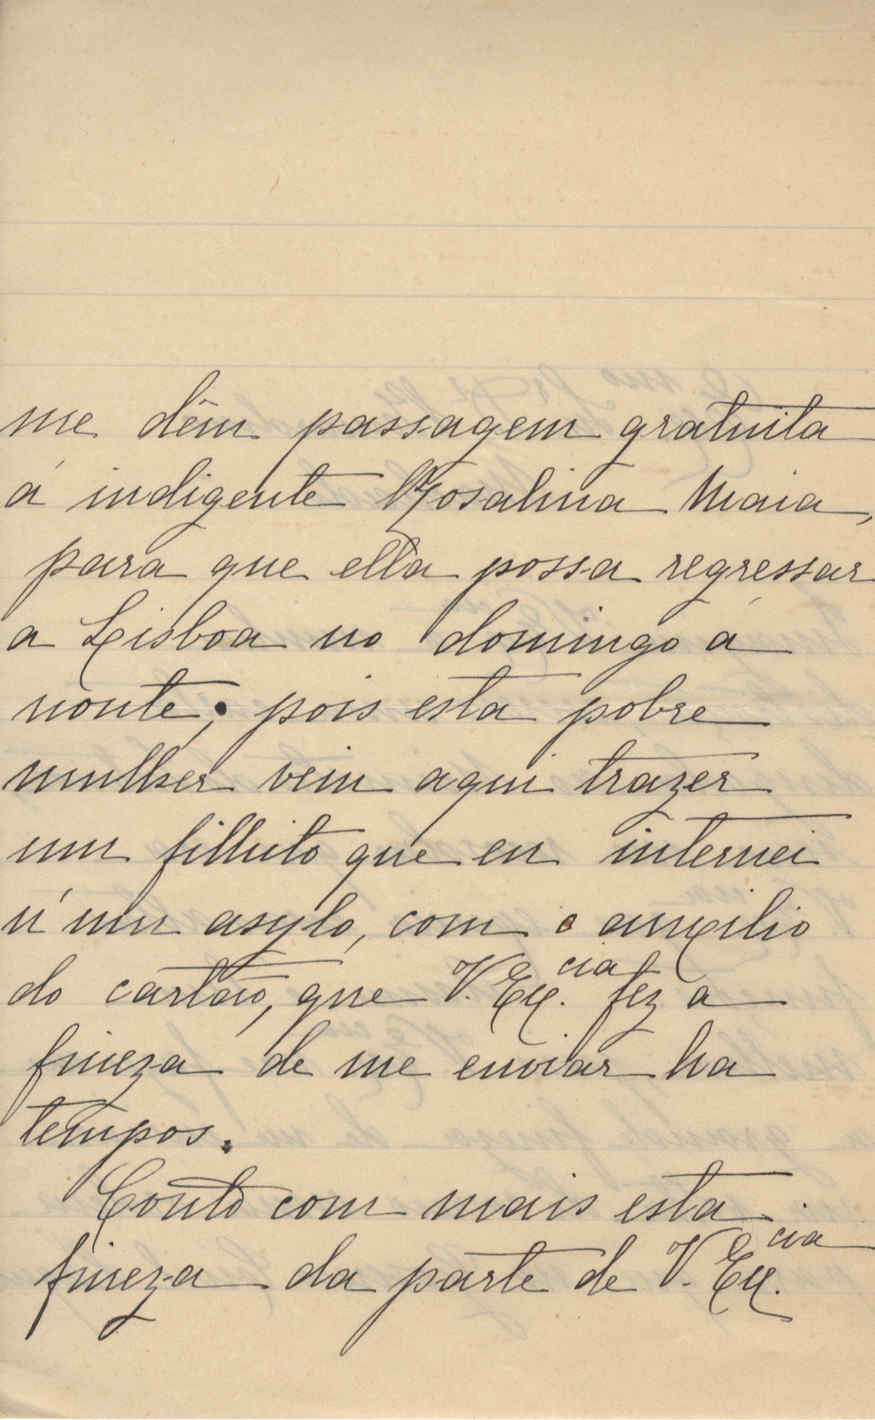 me dêm passagem gratuita
á indigente Rosalina Maia,
para que ella possa regressar
a Lisboa no domingo á
noute; pois esta pobre
mulher vem aqui trazer
um filhito que eu internei
n'um asylo, com o auxilio
do cartão, que V. Ex.cia fez a
fineza de me enviar ha
tempos.
Conto com mais esta
fineza da parte de V. Ex.cia